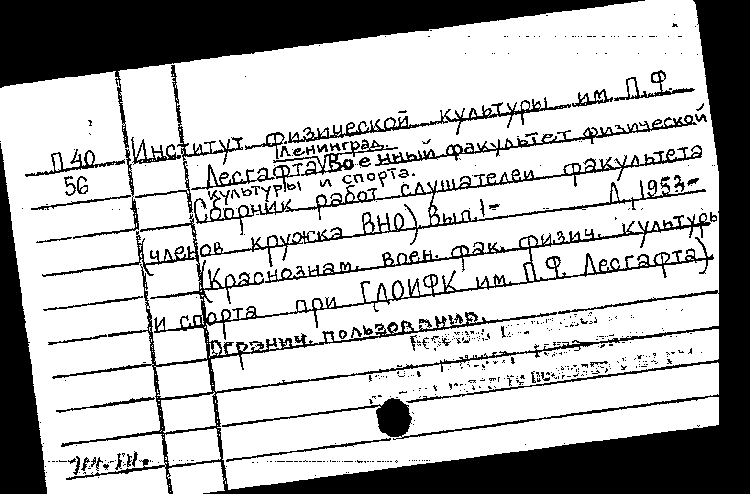 Институт физической культуры им. П.Ф.
Ленинград.
П 40
56
Лесгафта. Военный факультет физической
культуры и спорта.
Сборник работ слушателей факультета
(членов кружка ВНО). Вып. 1- Л., 1953-
(Краснознам. воен. фак. физич. культуры
и спорта при ГДОИФК им. П.Ф. Лесгафта).
Огранич. пользование.